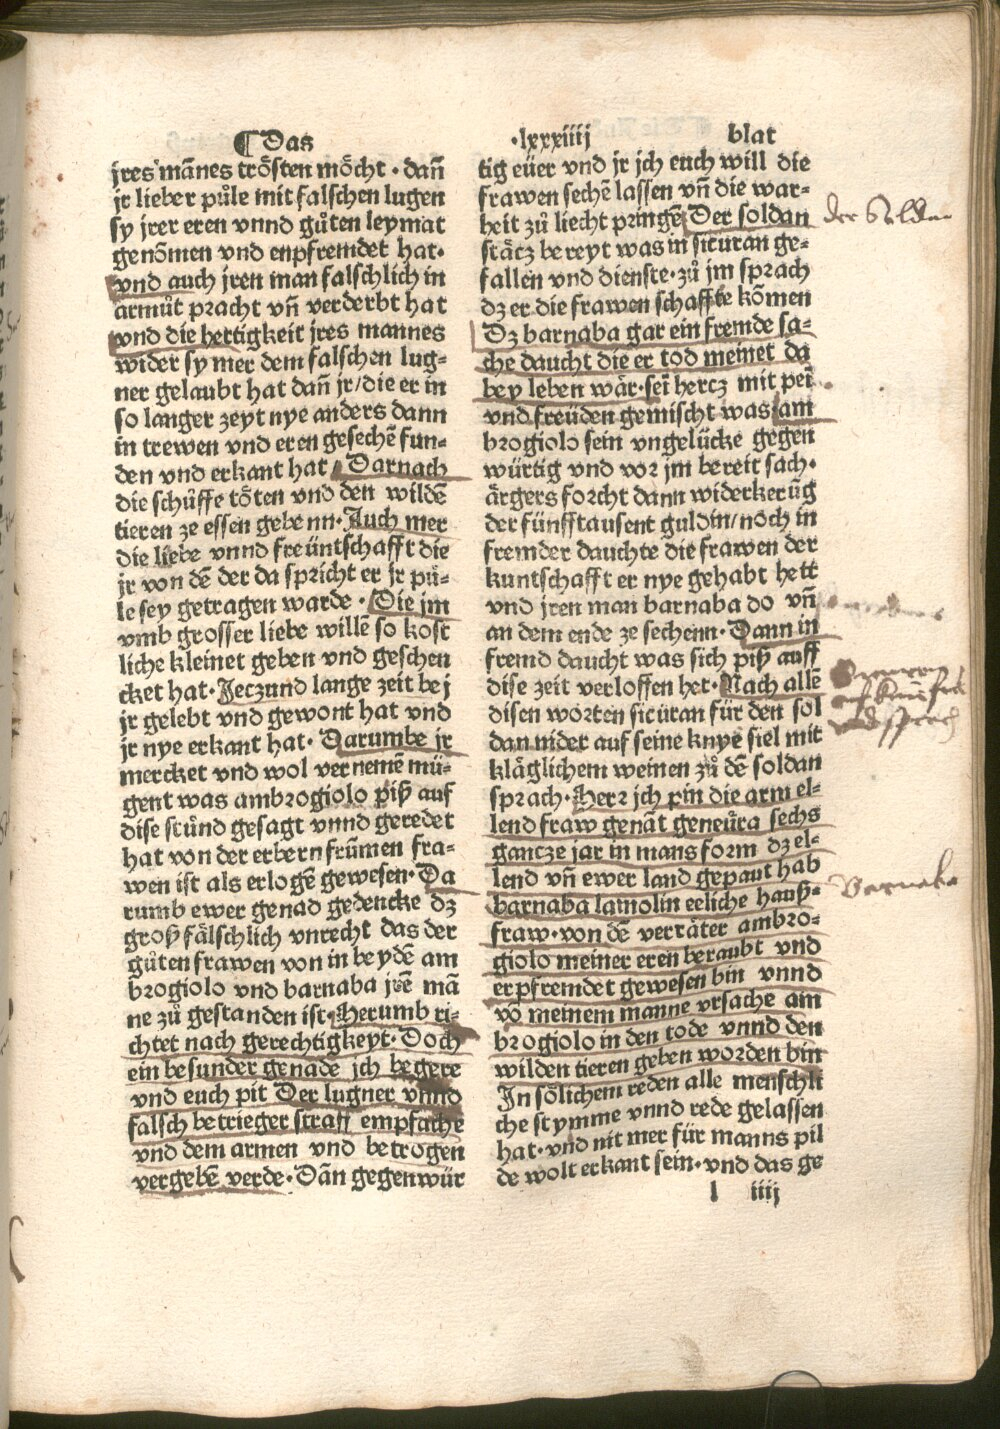 ¶ Das .lxxxiiij blat
jres mānes trösten möcht · dañ
jr lieber půle mit falschen lugen
sy jrer eren vnnd gůten leymat
genōmen vnd enpfremdet hat·
vnd auch jren man falschlich in
armůt pracht vñ verderbt hat
vnd die hertigkeit jres mannes
wider sy mer dem falschen lug⸗
ner gelaubt hat dañ jr/die er in
so langer zeyt nye anders dann
in trewen vnd eren gesechē fun⸗
den vnd erkant hat/Darnach
die schüffe töten vnd den wildē
tieren ze essen gebenn·Auch mer
die liebe vnnd freüntschafft die
jr von dē der da spricht er jr pů⸗
le sey getragen warde · Die jm
vmb grosser liebe willē so kost
liche kleinet geben vnd geschen
cket hat·Jeczund lange zeit bej
jr gelebt vnd gewont hat vnd
jr nye erkant hat· Darumbe jr
mercket vnd wol vernemē mü⸗
gent was ambrogiolo piß auf
dise stůnd gesagt vnnd geredet
hat von der erbern frūmen fra⸗
wen ist als erlogē gewesen·Da
rumb ewer genad gedencke dz
groß fälschlich vnrecht das der
gůten frawen von in beydē am
brogiolo vnd barnaba jrē mā
ne zů gestanden ist·Herumb ri⸗
chtet nach gerechtigkeyt·Doch
ein besunder genade jch begere
vnd euch pit Der lugner vnnd
falsch betrieger straff empfache
vnd dem armen vnd betrogen
vergebē verde·Dān gegenwür
tig eüer vnd jr jch euch will die
frawen sechē lassen vñ die war⸗
heit zů liecht pringē/Der soldan
stäcz bereyt was in sicuran ge⸗
fallen vnd dienste·zů jm sprach
dz er die frawen schaffte kōmen
Dz barnaba gar ein fremde sa⸗
che daucht die er tod meinet da
bey leben wär·sei hercz mit pei
vnd freüden gemischt was/am
brogiolo sein vngelücke gegen
würtig vnd vor jm bereit sach·
ärgers forcht dann widerkerūg
der fünfftausent guldin/noch in
fremder dauchte die frawen der
kuntschafft er nye gehabt hett
vnd jren man barnaba do vñ
an dem ende ze sechenn·Dann in
fremd daucht was sich piß auff
dise zeit verloffen het·Nach allē
disen worten sicuran für den sol
dan nider auf seine knye fiel mit
kläglichem weinen zů dē soldan
sprach·Herr jch pin die arm el⸗
lend fraw genāt geneüra sechs
gancze jar in mans form dz el⸗
lend vñ ewer land gepaut hab
barnaba lamolin eeliche hauß⸗
fraw·von dē verräter ambro⸗
giolo meiner eren beraubt vnd
erpfremdet gewesen bin vnnd
vō meinem manne vrsache am
brogiolo in den tode vnnd den
wilden tieren geben worden bin
In sölichem reden alle menschli
che stymme vnnd rede gelassen
hat·vnd nit mer für manns pil
de wolt erkant sein·vnd das ge
l iiij
der Soldan
Barnaba